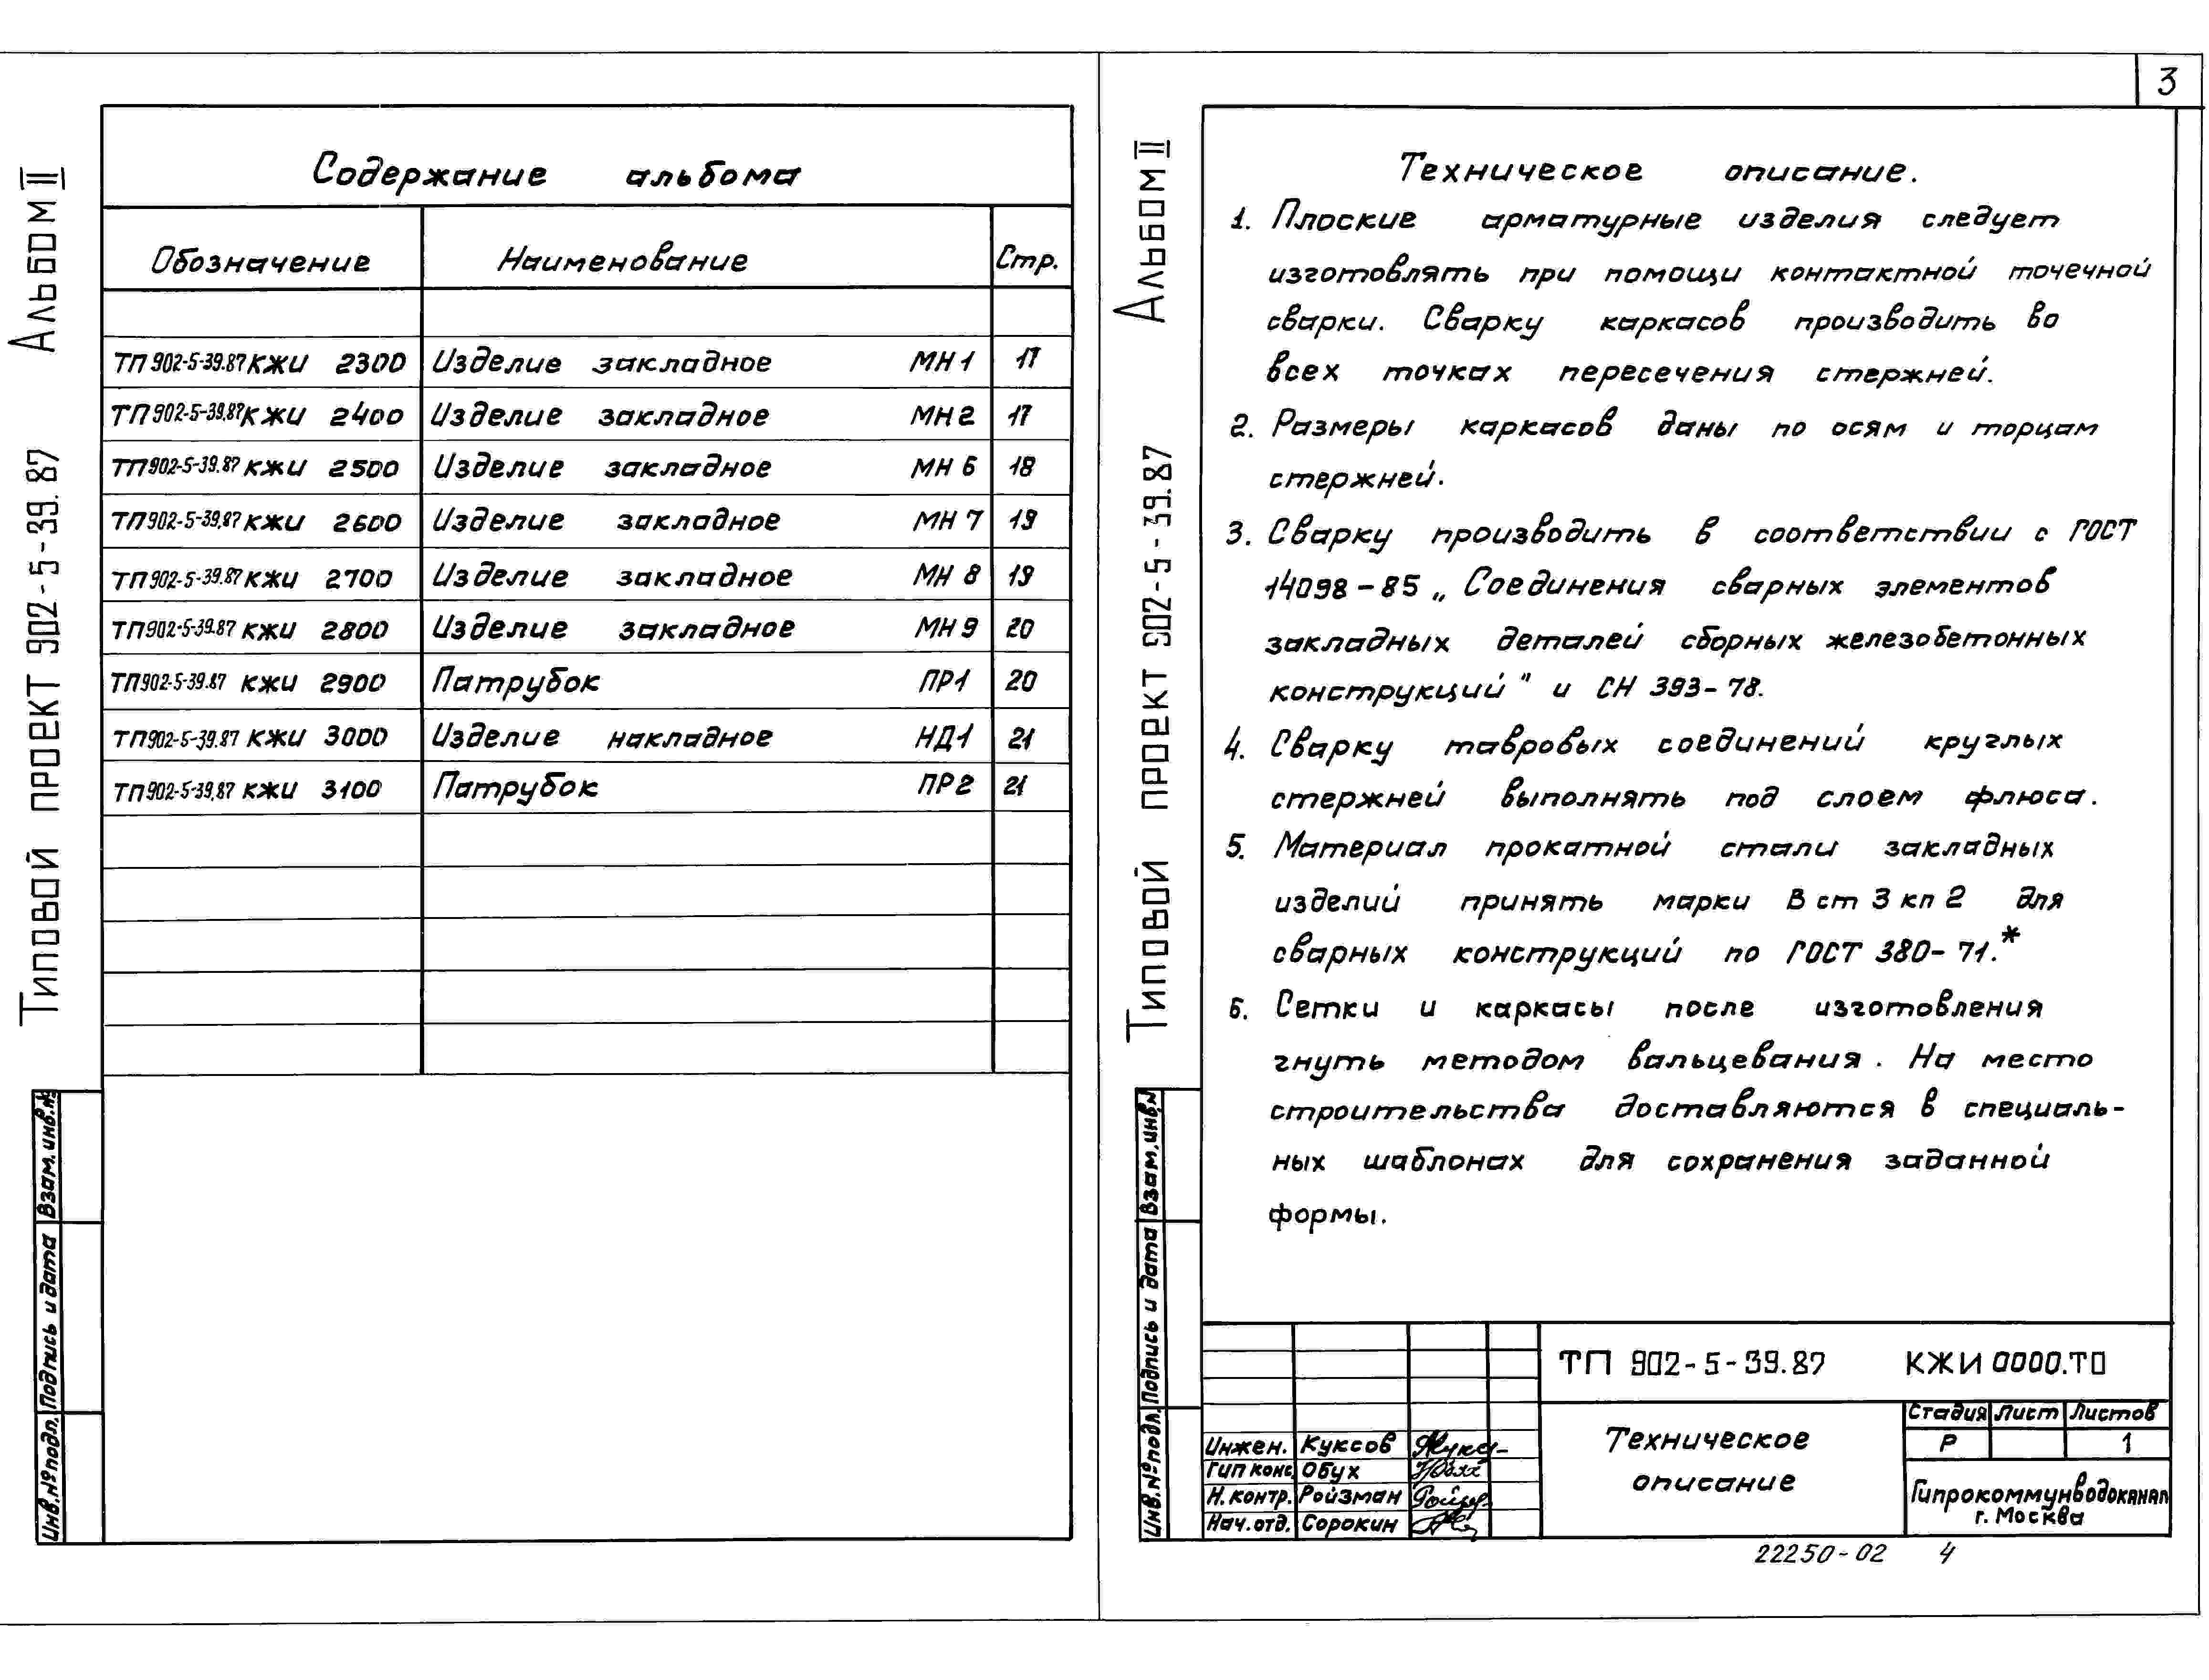 Альбом II
Типовой проект 902-5-39.87
Содержание альбома
Обозначение Наименование Стр.
ТП 902-5-39.87 КЖИ 2300 Изделие закладное МН 1 17
ТП 902-5-39.87 КЖИ 2400 Изделие закладное МН 2 17
ТП 902-5-39.87 КЖИ 2500 Изделие закладное МН 6 18
ТП 902-5-39.87 КЖИ 2600 Изделие закладное МН 7 19
ТП 902-5-39.87 КЖИ 2700 Изделие закладное МН 8 19
ТП 902-5-39.87 КЖИ 2800 Изделие закладное МН 9 20
ТП 902-5-39.87 КЖИ 2900 Патрубок ПР1 20
ТП 902-5-39.87 КЖИ 3000 Изделие накладное НД1 21
ТП 902-5-39.87 КЖИ 3100 Патрубок ПР2 21
Взам. инв.№
Подпись и дата
Инв.№подл.
3
Альбом II
Типовой проект 902-5-39.87
Техническое описание.
1. Плоские арматурные изделия следует
изготовлять при помощи контактной точечной
сварки. Сварку каркасов производить во
всех точках пересечения стержней.
2. Размеры каркасов даны по осям и торцам
стержней.
3. Сварку производить в соответствии с ГОСТ
14098-85 „Соединения сварных элементов
закладных деталей сборных железобетонных
конструкций" и СН 393-78.
4. Сварку тавровых соединений круглых
стержней выполнять под слоем флюса.
5. Материал прокатной стали закладных
изделий принять марки В ст 3 кп 2 для
сварных конструкций по ГОСТ 380-71.*
6. Сетки и каркасы после изготовления
гнуть методом вальцевания. На место
строительства доставляются в специаль-
ных шаблонах для сохранения заданной
формы.
Взам. инв.№
Подпись и дата
Инв.№подл.
ТП 902-5-39.87 КЖИ 0000.ТО
Техническое
описание
Стадия Лист Листов
Р 1
Инжен. Куксов
Гип конс. Обух
Н. контр. Ройзман
Нач. отд. Сорокин
Гипрокоммунводоканал
г. Москва
22250-02 4